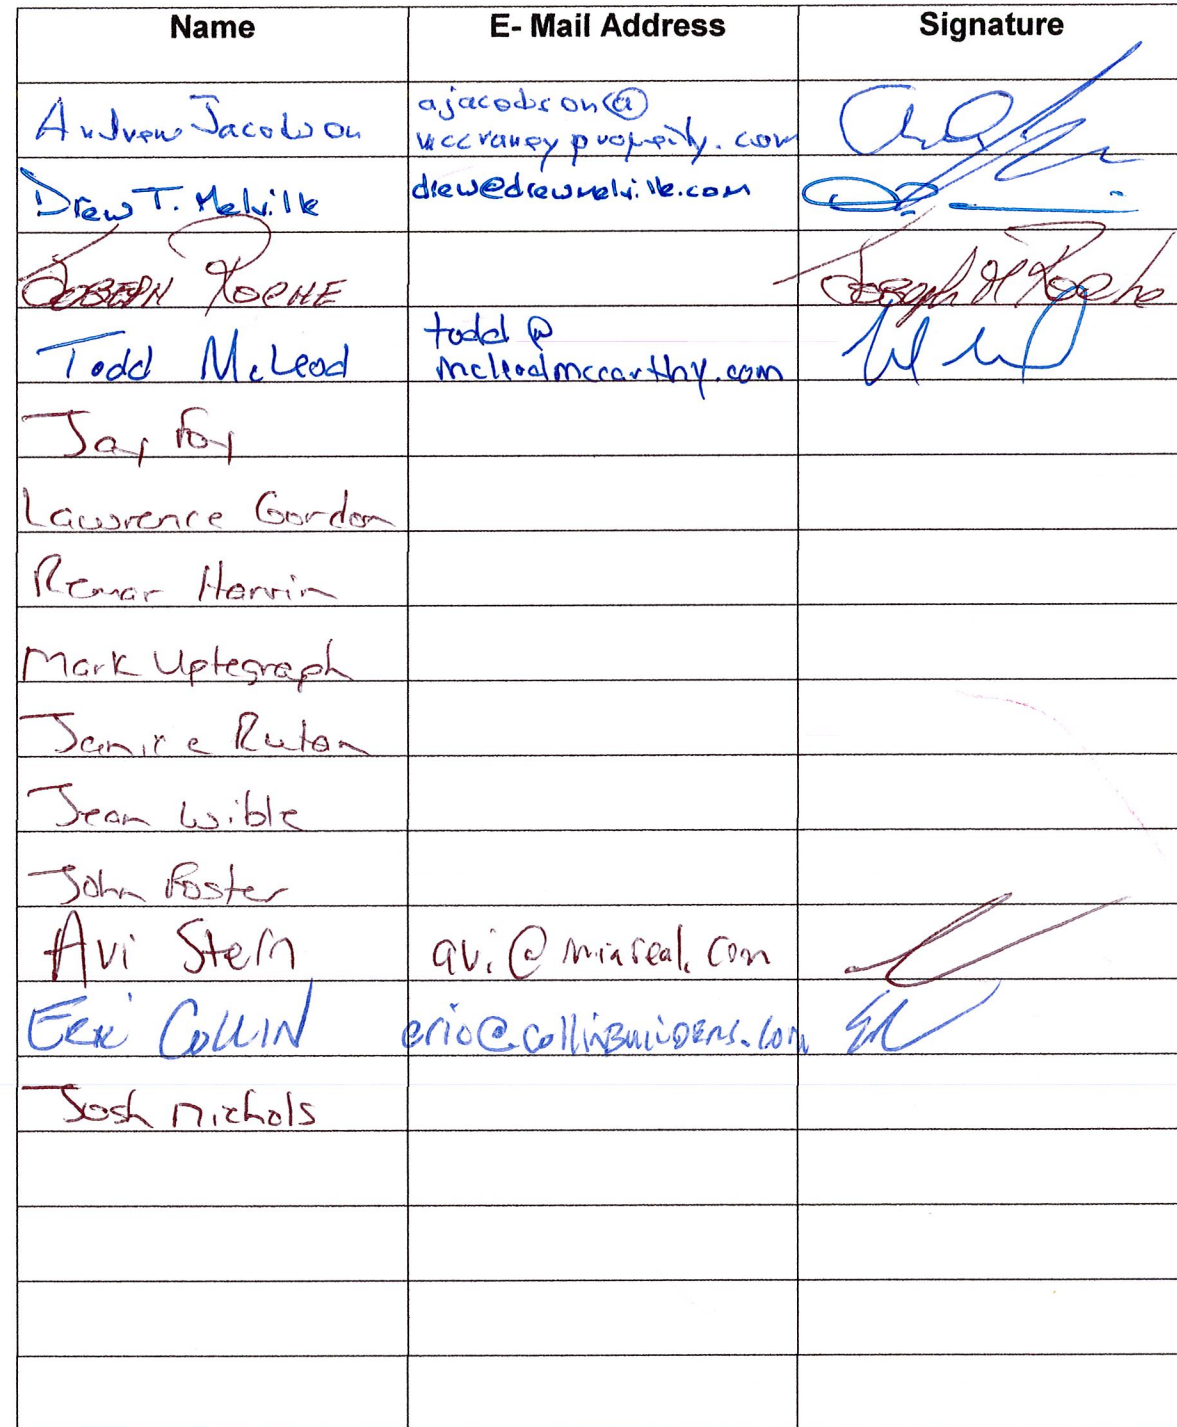 Name E- Mail Address Signature
Andrew Jacobson ajacobson@
mccraneyproperty.com
Drew T. Melville drew@drewmelville.com
JOSEPH ROCHE Joseph M Roche
Todd McLeod todd@
mcleodmccarthy.com
Jay Foy
Lawrence Gordon
Remar Harvin
Mark Uptegraph
Janice Rutan
Jean Wible
John Foster
Avi Stern avi@miareal.com
Eric COLLIN eric@collinBuilders.com
Josh Nichols